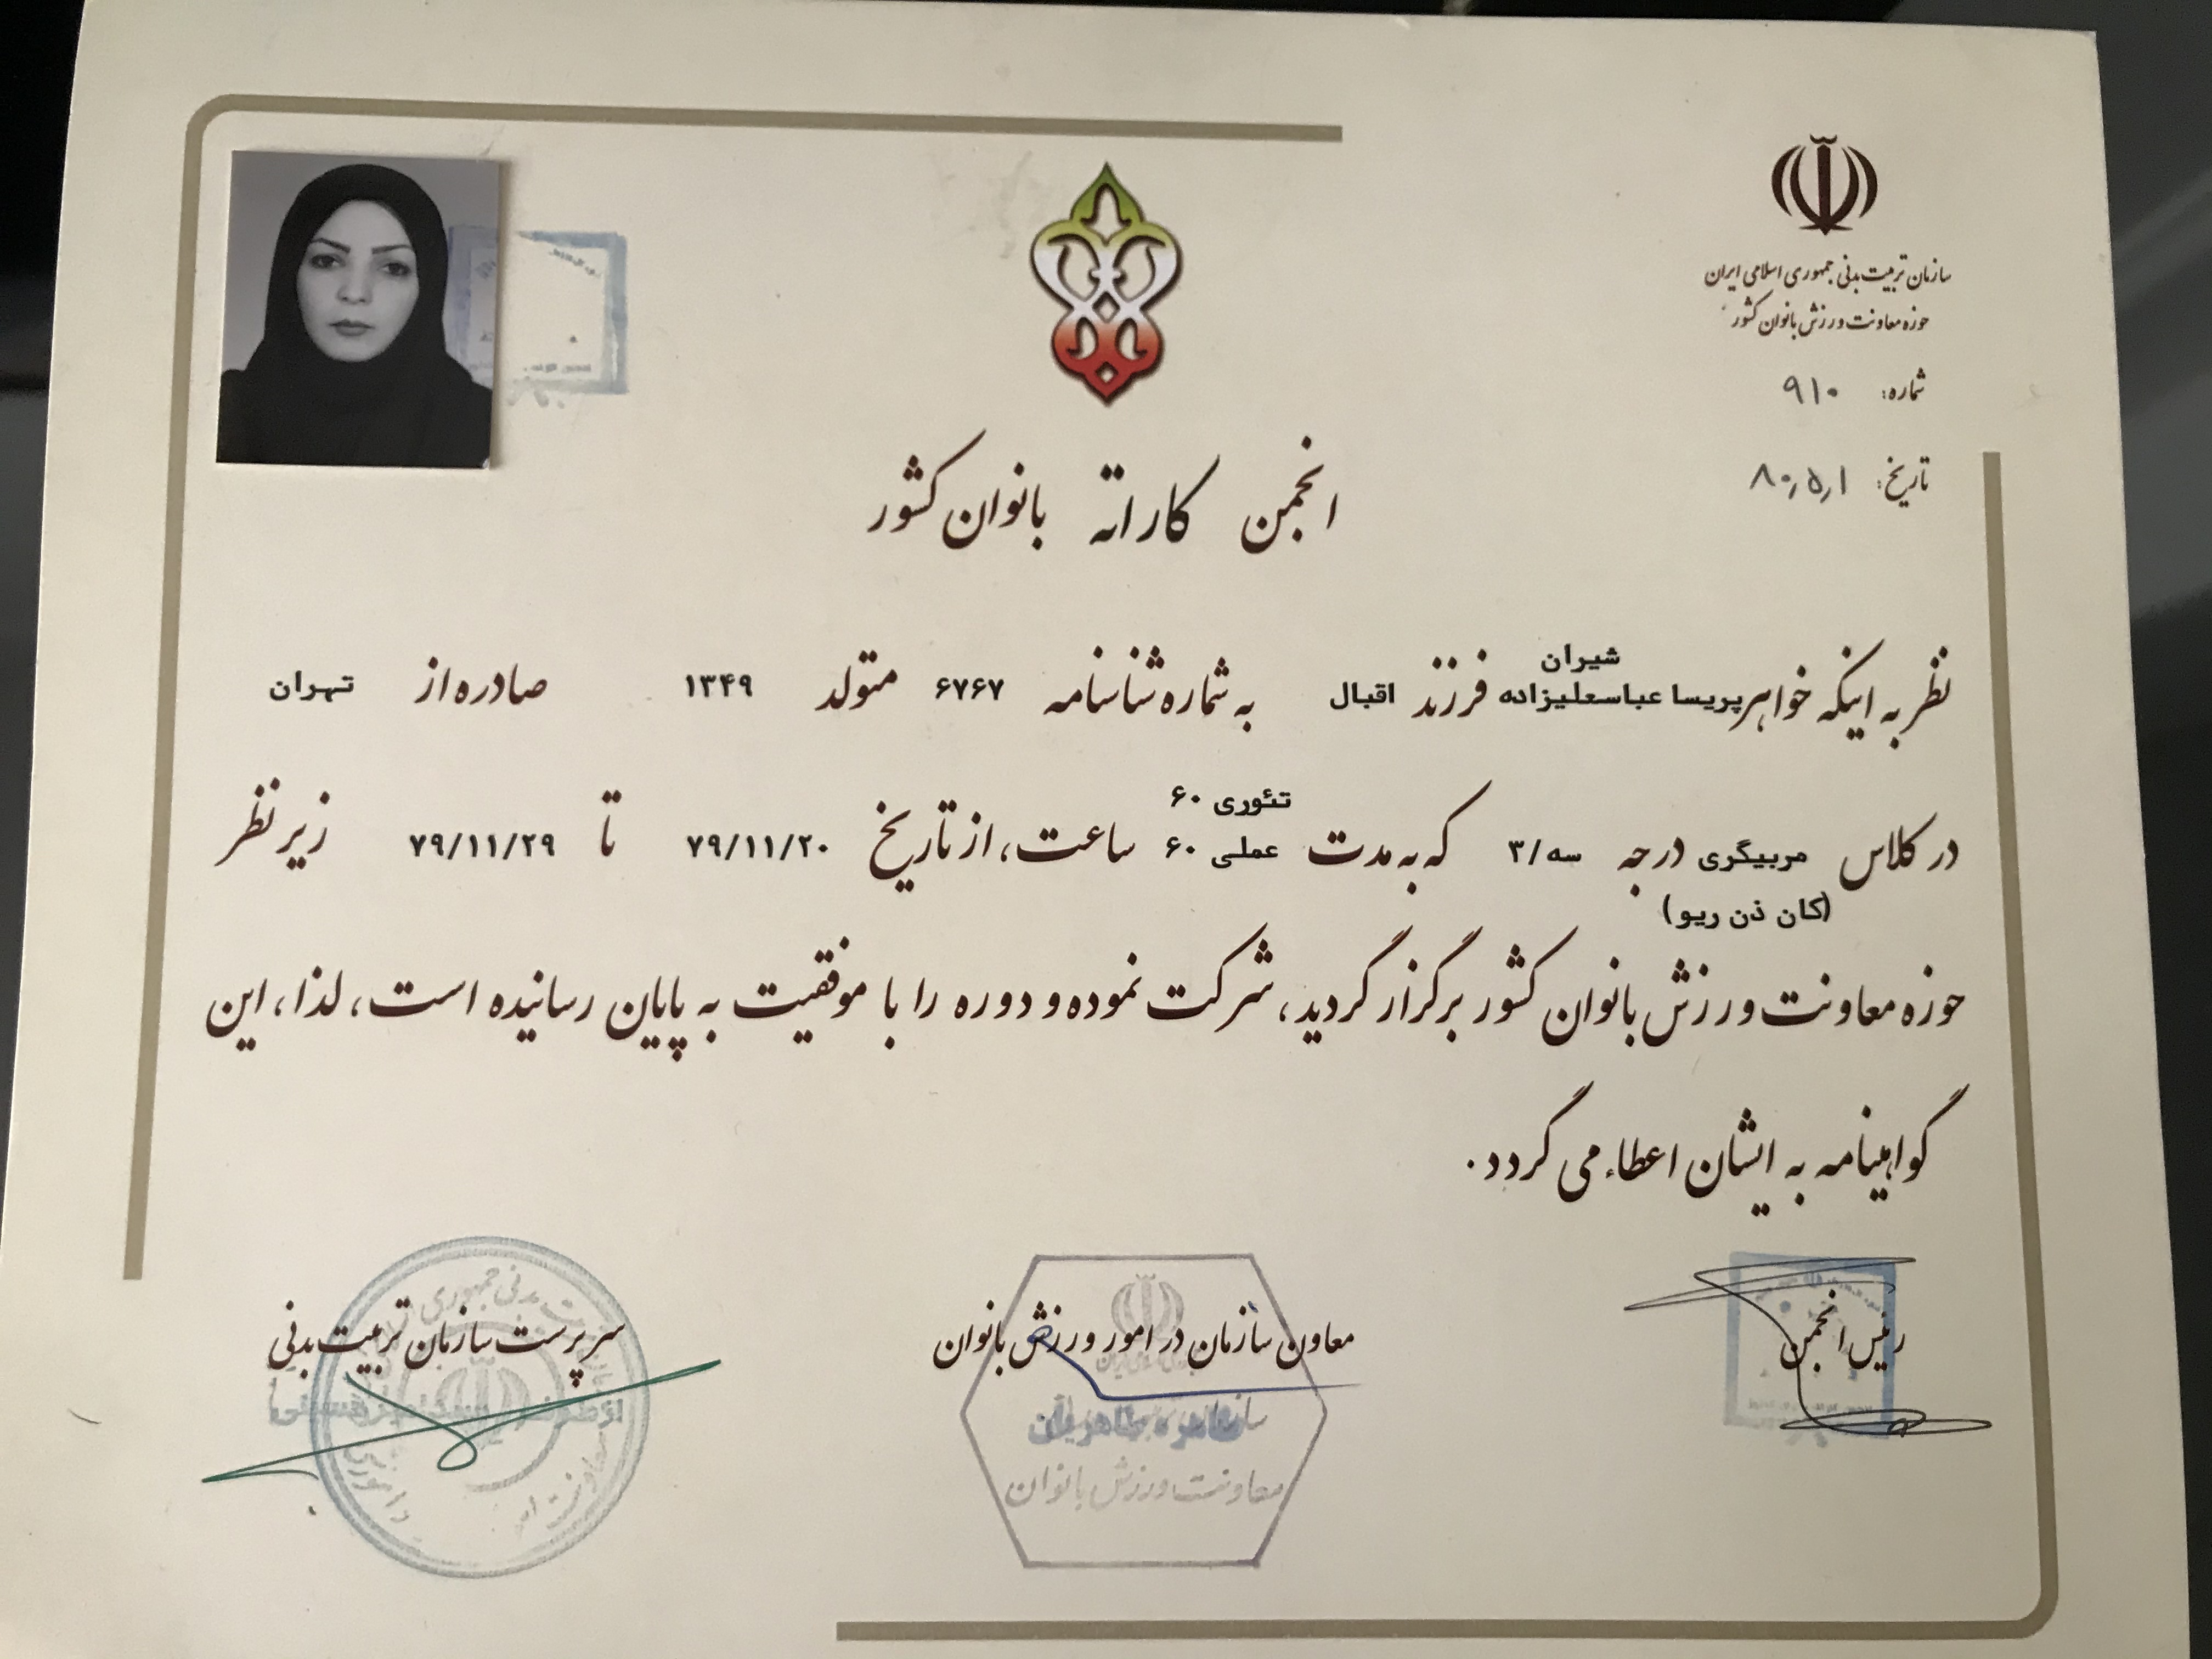 سازمان تربیت بدنی جمهوری اسلامی ایران
حوزه معاونت ورزش بانوان کشور
شماره: ۹۱۰
تاریخ: ۸۰٫۵٫۱
انجمن کاراته بانوان کشور
شیران
نظر به اینکه خواهر پریسا عباسعلیزاده فرزند اقبال به شماره شناسنامه ۶۷۶۷ متولد ۱۳۴۹ صادره از تهران
تئوری ۶۰
در کلاس مربیگری درجه سه/۳ که به مدت عملی ۶۰ ساعت، از تاریخ ۷۹/۱۱/۲۰ تا ۷۹/۱۱/۲۹ زیر نظر
(کان ذن ریو)
حوزه معاونت ورزش بانوان کشور برگزار گردید، شرکت نموده و دوره را با موفقیت به پایان رسانیده است، لذا، این
گواهینامه به ایشان اعطاء می گردد.
رئیس انجمن
معاون سازمان در امور ورزش بانوان
طاهره طاهریان
معاونت ورزش بانوان
سرپرست سازمان تربیت بدنی